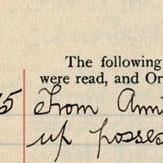 The following
were read, and On
5 From Ami
up posses